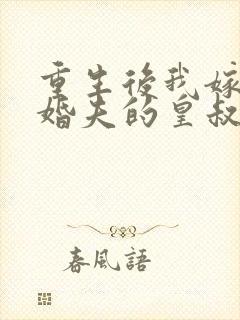 重生後我嫁
婚夫的皇叔
春風語